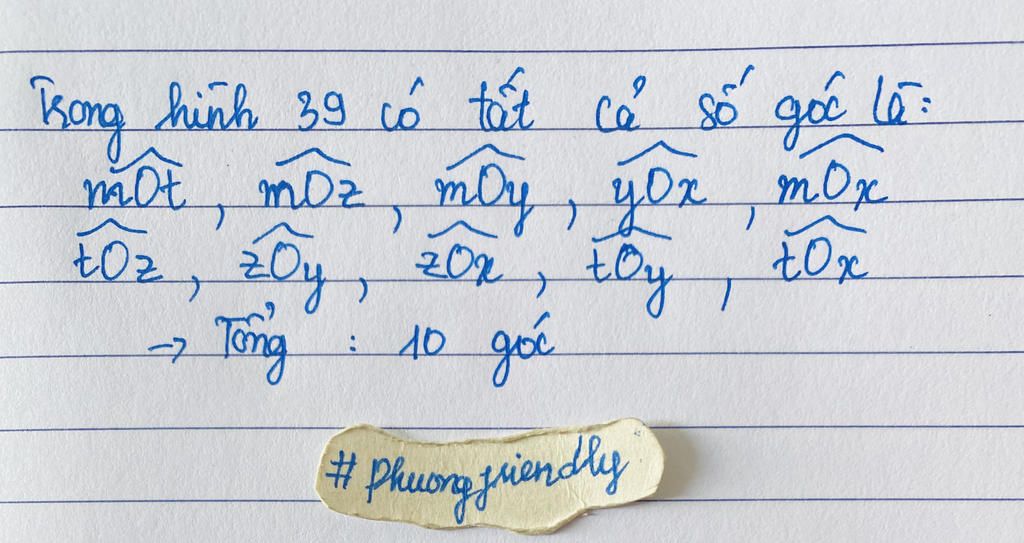 Trong hình 39 có tất cả số góc là:
m͡Ot, m͡Oz, m͡Oy, y͡Ox, m͡Ox
t͡Oz, z͡Oy, z͡Ox, t͡Oy, t͡Ox
→ Tổng : 10 góc
#phuongfriendly